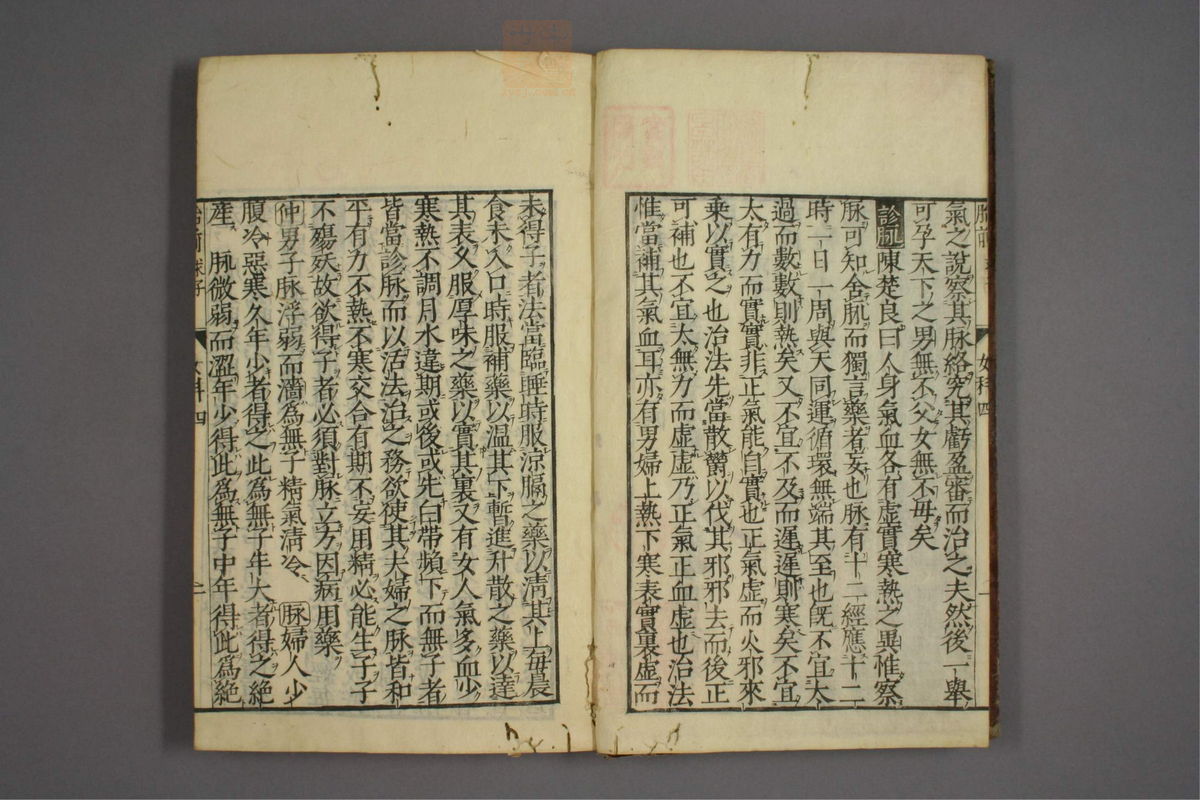 胎前
女科四
氣之說察其脉絡究其虧盈審而治之夫然後一舉
可孕天下之男無不父女無不母矣
診脈陳楚良曰人身氣血各有虛實寒熱之異惟察
脉可知舍脈而獨言藥者妄也脉有十二經應十二
時一日一周與天同運循環無端其至也旣不宜太
過而數數則熱矣又不宜不及而遲遲則寒矣不宜
太有力而實實非正氣能自實也正氣虛而火邪來
乗以實之也治法先當散欝以伐其邪邪去而後正
可補也不宜太無力而虛虛乃正氣正血虛也治法
惟當補其氣血耳亦有男婦上熱下寒表實裏虛而
未得子者法當臨睡時服涼膈之藥以清其上每晨
食未入口時服補藥以温其下暫進升散之藥以達
其表久服厚味之藥以實其裏又有女人氣多血少
寒熱不調月水違期或後或先白帶頻下而無子者
皆當診脉而以活法治之務欲使其夫婦之脉皆和
平有力不熱不寒交合有期不妄用精必能生子子
不殤殀故欲得子者必須對脉立方因病用藥
仲男子脉浮弱而濇爲無子精氣清冷 脉婦人少
腹冷惡寒久年少者得之此爲無子年大者得之絶
產 脈微弱而澀年少得此爲無子中年得此爲絶
胎前 求子
女科四
二